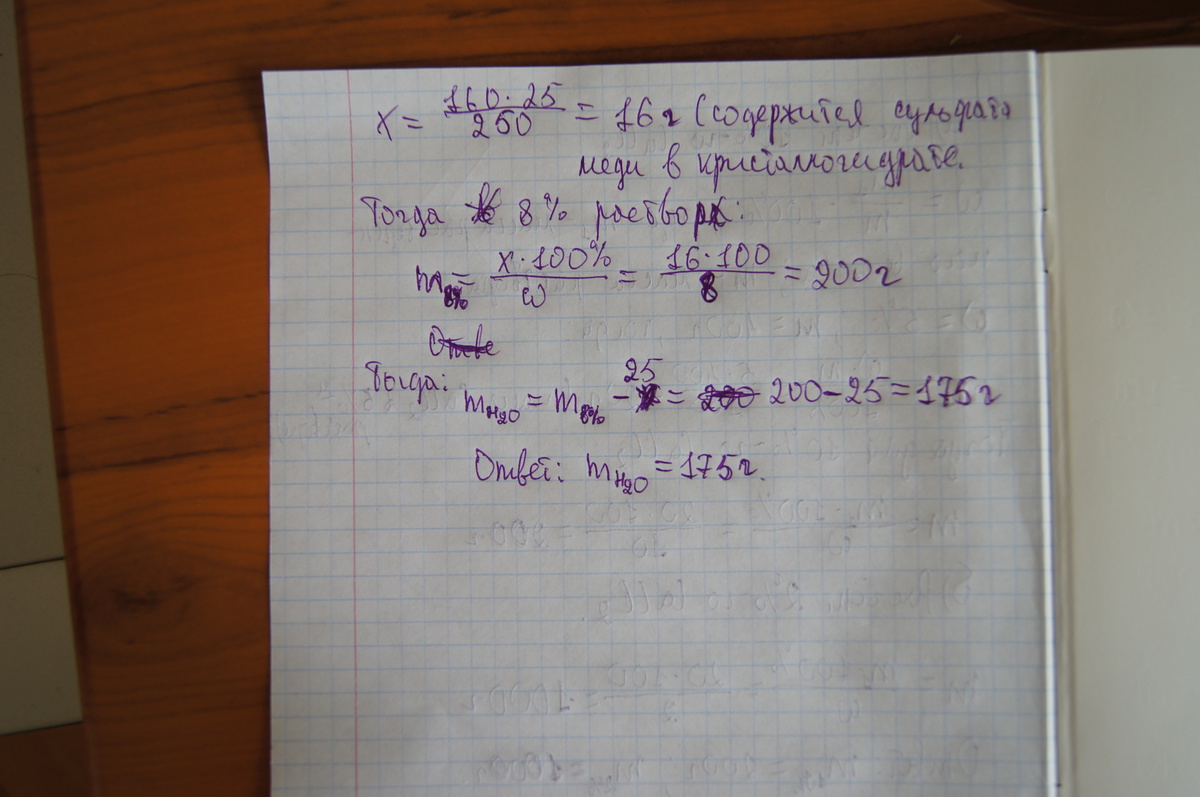 x = 160·25/250 = 16г (содержится сульфата
меди в кристаллогидрате.
Тогда 8% раствор:
m8% = x·100%/ω = 16·100/8 = 200г
Отве
Тогда:
mH2O = m8% - 25 = 200 200-25 = 175г
Ответ: mH2O = 175г.